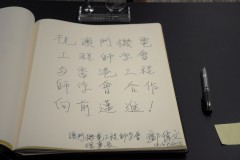 祝澳門機電
工程師學會
與香港工程
師學會合作
向前邁進！
澳門機電工程師學會
理事長